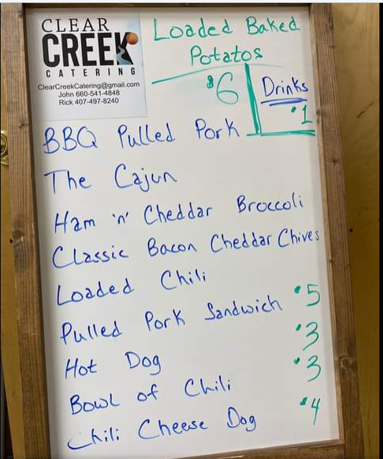 CLEAR
CREEK
CATERING
ClearCreekCatering@gmail.com
John 660-541-4848
Rick 407-497-8240
Loaded Baked
Potatos
$6
Drinks
$1
BBQ Pulled Pork
The Cajun
Ham 'n' Cheddar Broccoli
Classic Bacon Cheddar Chives
Loaded Chili
Pulled Pork Sandwich $5
Hot Dog $3
Bowl of Chili $3
Chili Cheese Dog $4